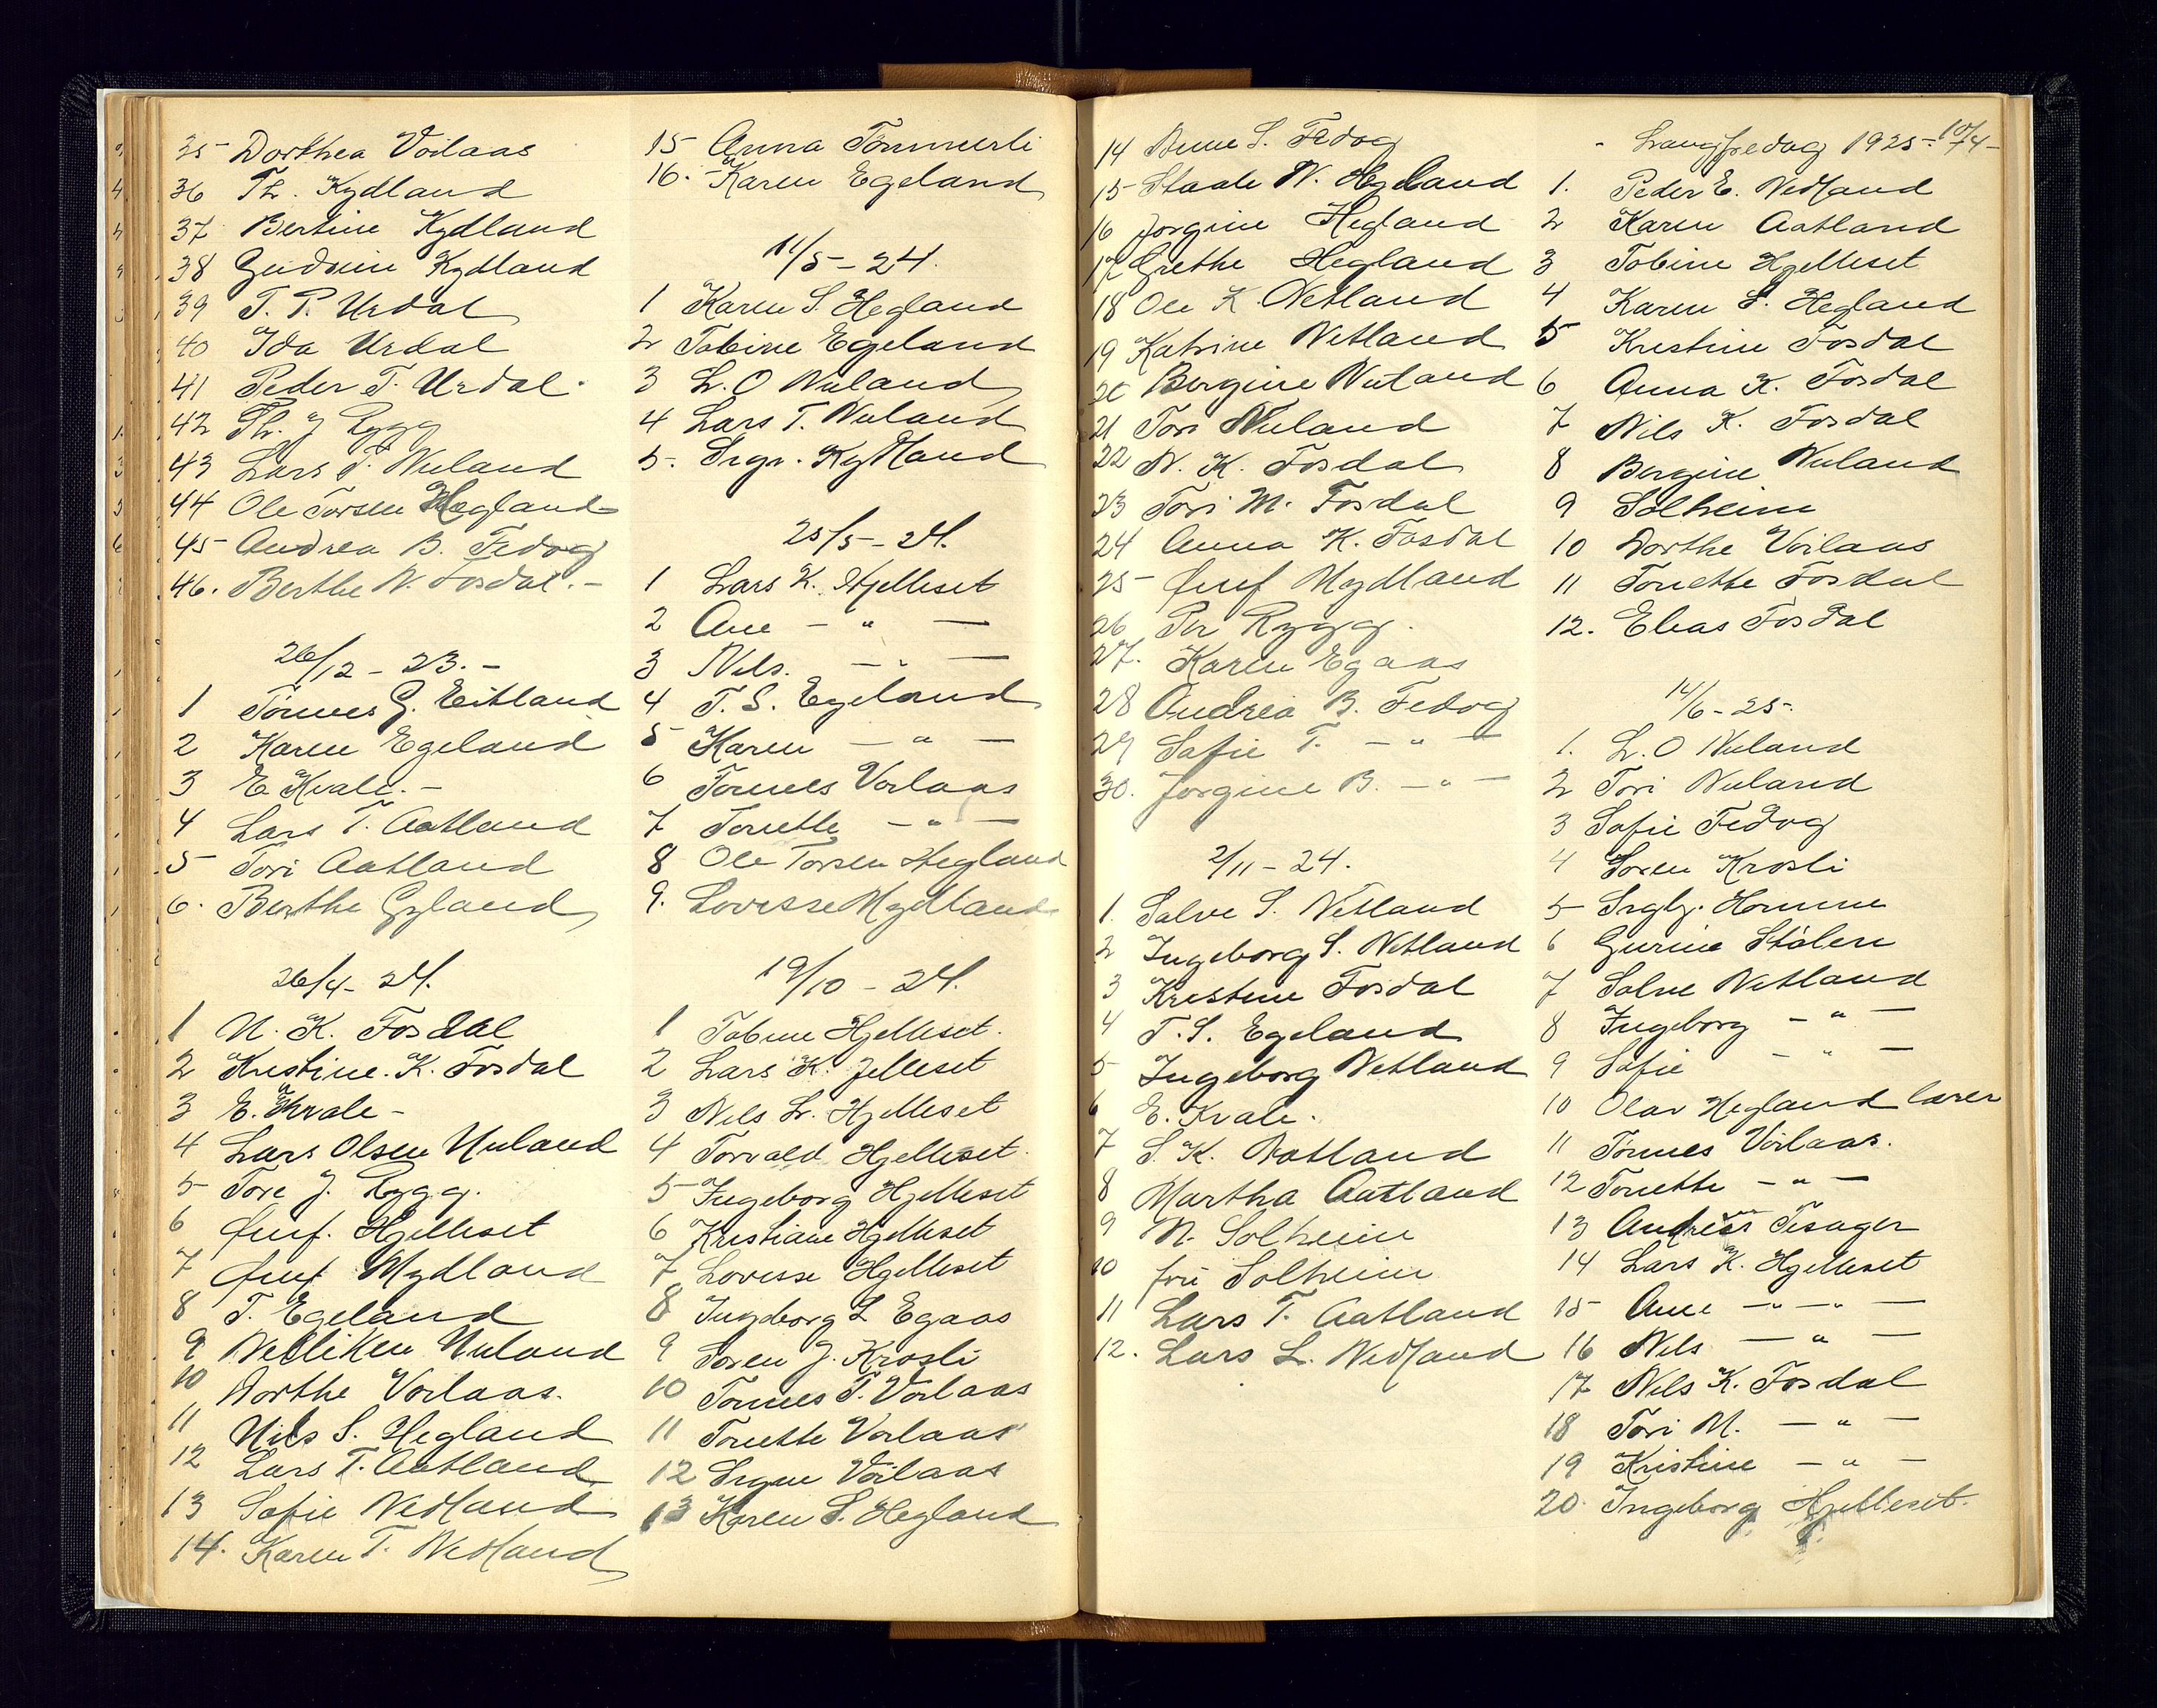 35 Dorthea Voilaas
36 Th. Kydland
37 Bertine Kydland
38 Gudrun Kydland
39 T. P. Urdal
40 Ida Urdal
41 Peder T. Urdal.
42 Th. J Rygg
43 Lars T. Nuland
44 Ole Torsen Hegland
45 Andrea B. Fedog
46. Berthe N. Fosdal. -
26/12 - 23. -
1 Tönnes G. Eitland
2 Karen Egeland
3 E Kvale. -
4 Lars T. Aatland
5 Tori Aatland
6. Berthe Gyland
26/4 - 24.
1 N. K. Fosdal
2 Kristine. K. Fosdal
3 E. Kvale -
4 Lars Olsen Nuland
5 Tore J. Rygg.
6 Hjelleset
7 Mydland
8 T. Egeland
9 Nelliken Nuland
10 Dorthe Voilaas.
11 Nils S. Hegland
12 Lars T. Aatland
13 Sofie Nedland
14. Karen T. Nedland
15 Anna Tönnesli
16. Karen Egeland
11/5 - 24.
1 Karen S. Hegland
2 Tobine Egeland
3 L. O Nuland
4 Lars T. Nuland
5. Kydland
25/5 - 24.
1 Lars K. Hjelleset
2 Ane - " -
3 Nils. - " -
4 T. S. Egeland
5 Karen - " -
6 Tönnes Voilaas
7 Tonette - " -
8 Ole Torsen Hegland
9. Lovisse Mydland
19/10 - 24.
1 Tobine Hjelleset.
2 Lars K. Jelleset
3 Nils L. Hjelleset
4 Torvald Hjelleset.
5 Ingeborg Hjelleset
6 Kristiane Hjelleset
7 Lovisse Hjelleset
8 Ingeborg L Egaas
9 Soren J. Krosli
10 Tonnes T. Voilaas
11 Tonette Voilaas
12 Voilaas
13 Karen S. Hegland
14 Anne S. Fedog
15 Staale N. Hegland
16 Jorgine Hegland
17 Grethe Hegland
18 Ole K. Netland
19 Katrine Netland
20 Bergine Nuland
21 Tori Nuland
22 N. K. Fosdal
23 Tori M. Fosdal
24 Anna K. Fosdal
25 Mydland
26 Per Rygg.
27. Karen Egaas
28 Andrea B. Fedog
29 Sofie T. - " -
30. Jorgine B. - " -
2/11 - 24.
1. Salve S. Netland
2 Ingeborg S. Netland
3 Kristine Fosdal
4 T. S. Egeland
5 Ingeborg Netland
6 E. Kvale.
7 S. K. Aatland
8 Martha Aatland
9 N. Solheim
10 fru Solheim
11 Lars T. Aatland
12. Lars L. Nedland
Langfredag 1925 - 10/4 -
1. Peder E. Nedland
2 Karen Aatland
3 Tobine Hjelleset
4 Karen S. Hegland
5 Kristine Fosdal
6 Anna K. Fosdal
7 Nils K. Fosdal
8 Bergine Nuland
9 Solheim
10 Dorthe Voilaas
11 Tonette Fosdal
12. Elias Fosdal
14/6 - 25.
1. L. O Nuland
2 Tori Nuland
3 Sofie Fedog
4 Soren Krosli
5 Homme
6 Gurine Stölen
7 Salve Netland
8 Ingeborg - " -
9 Sofie - " -
10 Olav Hegland lærer
11 Tönnes Voilaas.
12 Tonette - " -
13 Andreas Tesager
14 Lars K. Hjelleset
15 Ane - " - " -
16 Nils - " -
17 Nils K. Fosdal
18 Tori M. - " -
19 Kristine - " -
20. Ingeborg Hjelleset.